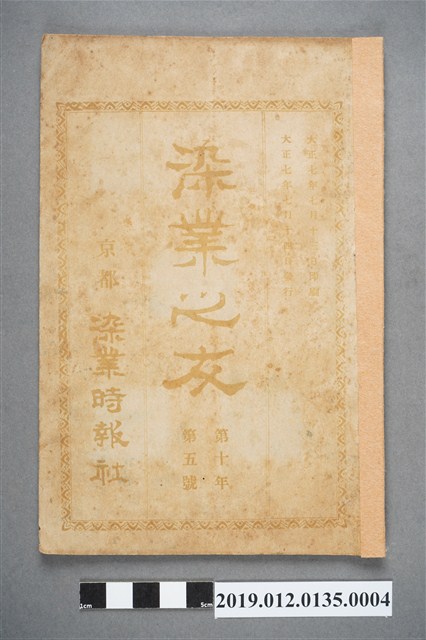 大正七年七月十
大正七年七月十
染業之友
第十年
第五號
京都
染業時報社
1cm
5cm
2019.012.0135.0004